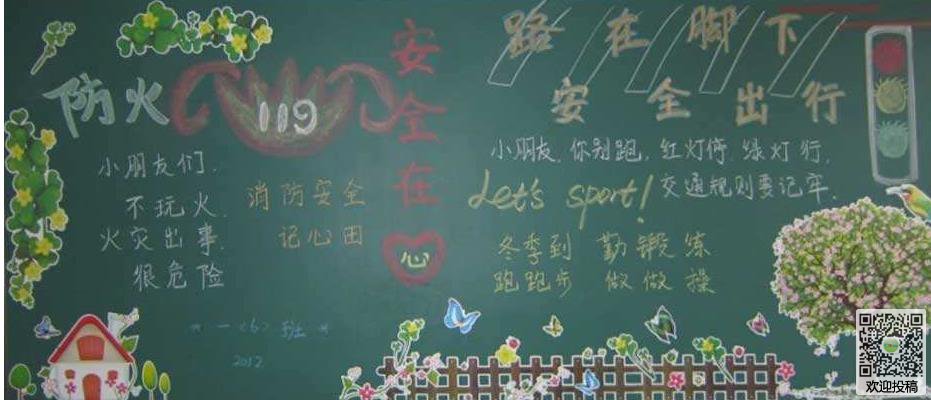 防火
119
小朋友们.
不玩火.
火灾出事.
很危险
消防安全
记心田
* 一<6> 班 *
2012
安全在心
路在脚下
安全出行
小朋友.你别跑.红灯停.绿灯行.
交通规则要记牢.
Let's sport!
冬季到 勤锻炼
跑跑步 做做操
欢迎投稿